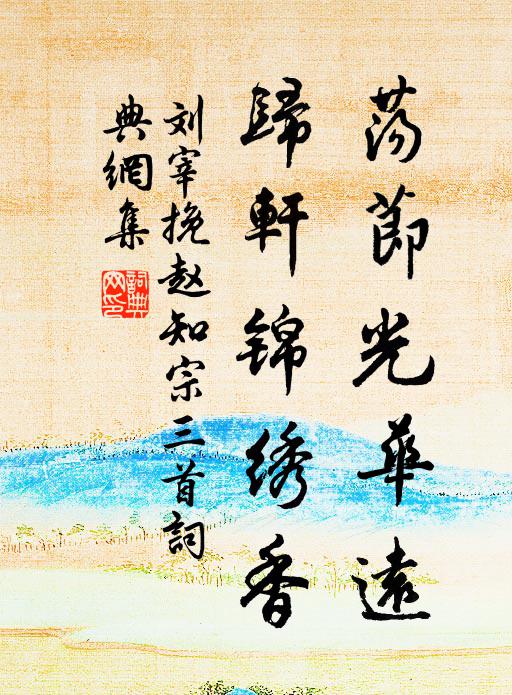 荡節光華遠
歸軒锦绣香
刘宰挽赵知宗三首詞
典網集
詞典
网印